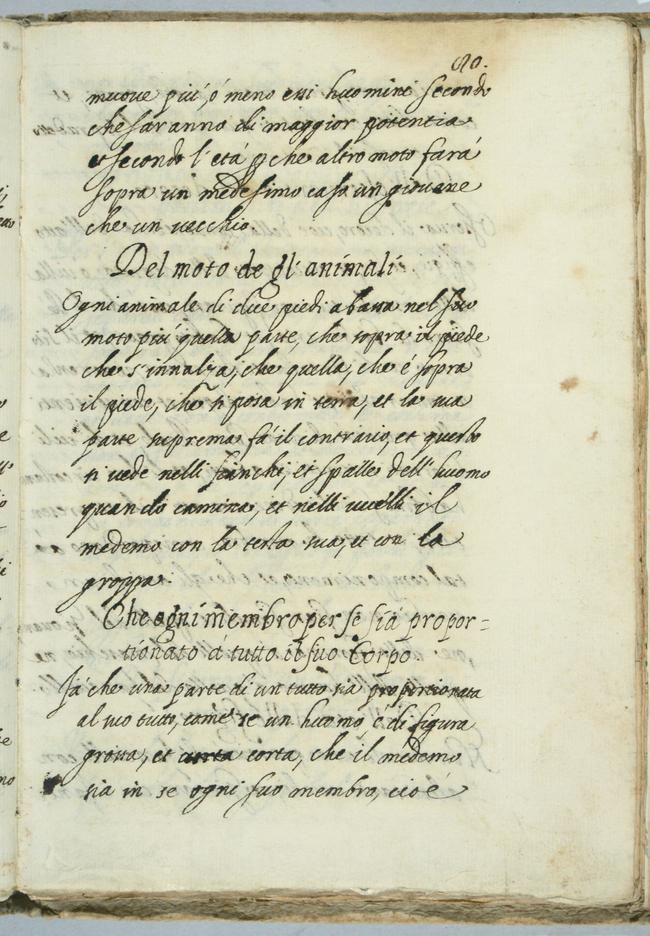 90.
muove piú, ó meno essi huomini secondo
che saranno di maggior potentia
et secondo l'etá che altro moto fará
sopra un medesimo caso un giovane
che un vecchio
Del moto de gl'animali
Ogni animale di due piedi abassa nel suo
moto piú quella parte, che sopra il piede
che s'innalza, che quella, che é sopra
il piede, che si posa in terra, et la sua
parte suprema fá il contrario, et questo
si vede nelli fianchi, et spalle dell'huomo
quando camina, et nelli ucelli il
medemo con la testa sua, et con la
groppa.
Che ogni membro per se sia propor=
tionato á tutto il suo Corpo
Fá che una parte di un tutto sia proportionata
al suo tutto, come se un huomo é di figura
grossa, et corta, che il medemo
sia in se ogni suo membro, cioé